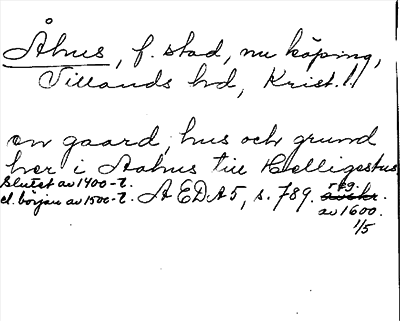 Åhus, f. stad, nu köping,
Villands hd, Krist. l
en gaard, hus och grund
her i Aahus till Helligestus
Slutet av 1400-t.
el. början av 1500-t. ÄEDA5, s. 789. reg.
av 1600.
1/5